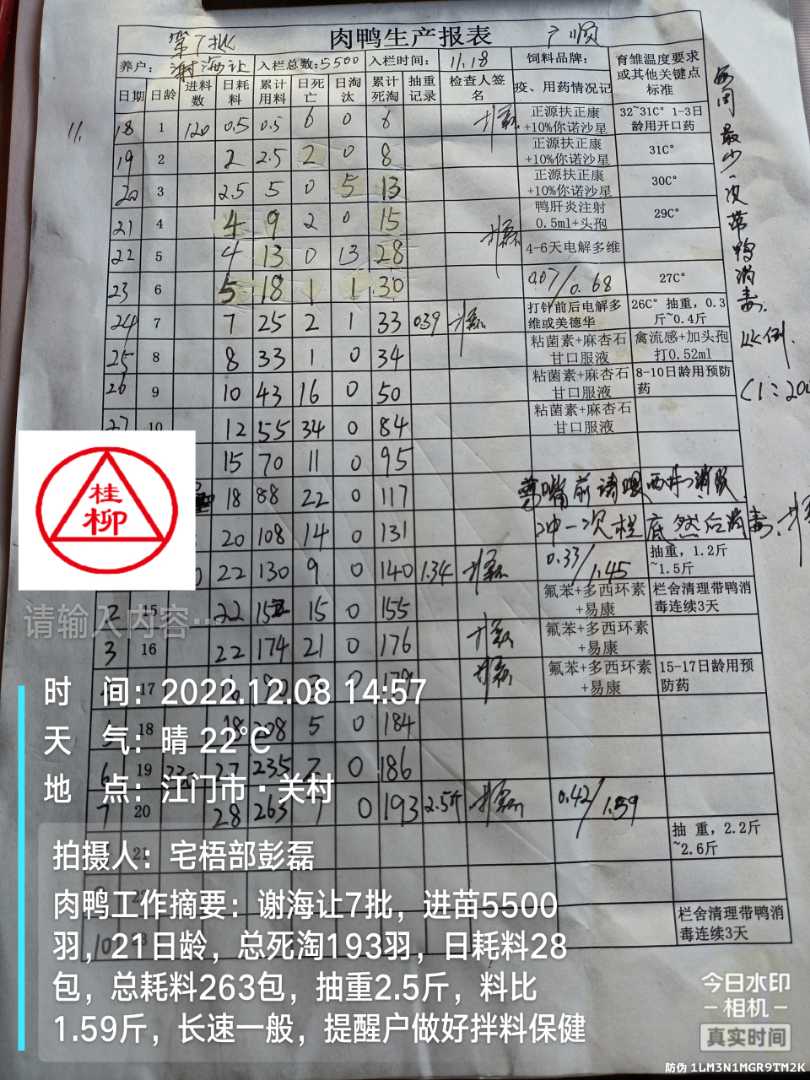 第7批 肉鸭生产报表 广顺
养户：谢海让 入栏总数：5500 入栏时间：11.18 饲料品牌： 育雏温度要求或其他关键点标准
日期 日龄 进料数 日耗料 累计用料 日死亡 日淘汰 累计死淘 抽重记录 检查人签名 疫、用药情况记
11. 18 1 120 0.5 0.5 6 0 6 正源扶正康+10%你诺沙星 32~31C° 1-3日龄用开口药
19 2 2 2.5 2 0 8 正源扶正康+10%你诺沙星 31C°
20 3 2.5 5 0 5 13 正源扶正康+10%你诺沙星 30C°
21 4 4 9 2 0 15 鸭肝炎注射0.5ml+头孢 29C°
22 5 4 13 0 13 28 4-6天电解多维
23 6 5 18 1 1 30 0.07/0.68 27C°
24 7 7 25 2 1 33 0.39 打针前后电解多维或美德华 26C° 抽重，0.3斤~0.4斤
25 8 8 33 1 0 34 粘菌素+麻杏石甘口服液 禽流感+加头孢打0.52ml
26 9 10 43 16 0 50 粘菌素+麻杏石甘口服液 8-10日龄用预防药
27 10 12 55 34 0 84 粘菌素+麻杏石甘口服液
15 70 11 0 95
18 88 22 0 117
20 108 14 0 131 冲一次栏底然后消毒
22 130 9 0 140 1.34 0.33/1.45 抽重，1.2斤~1.5斤
2 15 22 152 15 0 155 氟苯+多西环素+易康 栏舍清理带鸭消毒连续3天
3 16 22 174 21 0 176 氟苯+多西环素+易康
17 0 氟苯+多西环素+易康 15-17日龄用预防药
18 208 5 0 184
6 19 27 235 2 0 186
7 20 28 263 7 0 193 2.54 0.42/1.59
21 抽 重，2.2斤~2.6斤
22
10 23 栏舍清理带鸭消毒连续3天
每周最少一次带鸭消毒，比例
桂柳
请输入内容…
时 间：2022.12.08 14:57
天 气：晴 22℃
地 点：江门市·关村
拍摄人：宅梧部彭磊
肉鸭工作摘要：谢海让7批，进苗5500
羽，21日龄，总死淘193羽，日耗料28
包，总耗料263包，抽重2.5斤，料比
1.59斤，长速一般，提醒户做好拌料保健
今日水印
-相机-
真实时间
防伪 1LM3N1MGR9TM2K